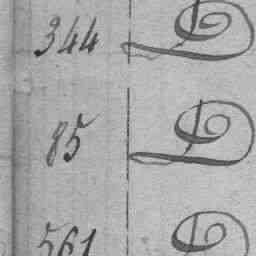 344 D
85 D
561 D